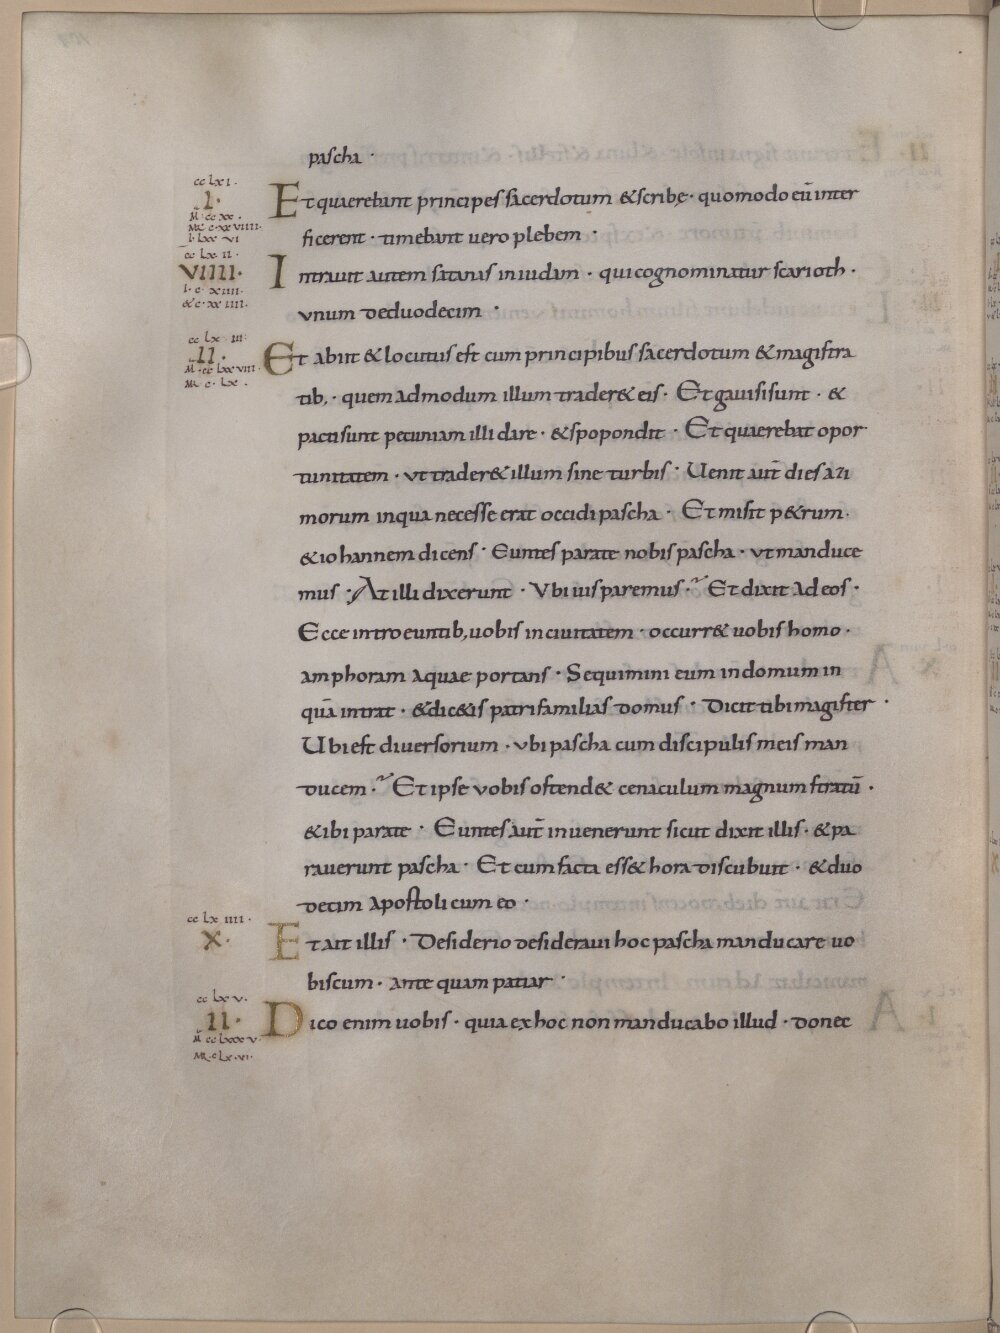 pascha ·
cc lxi ·
I ·
M · cc xx ·
MR · c · xx viiii ·
I · lxx · vi
Et quaerebant principes sacerdotum & scribę · quomodo eū inter
ficerent · timebant uero plebem ·
cc lx ii ·
VIIII ·
I · c · xiiii ·
& c · xx iiii ·
Intrauit autem satanas in iudam · qui cognominatur scarioth ·
vnum deduodecim ·
cc lx · iii ·
II ·
M · cc lxx viii ·
MR · c · lx ·
Et abiit & locutus est cum principibus sacerdotum & magistra
tib; · quem ad modum illum trader& eis · Et gauisi sunt · &
pacti sunt pecuniam illi dare · & spopondit · Et quaerebat opor
tunitatem · vt trader& illum sine turbis · Uenit aūt dies azi
morum in qua necesse erat occidi pascha · Et misit p&rum ·
& iohannem dicens · Euntes parate nobis pascha · vt manduce
mus · At illi dixerunt · Vbi uis paremus · Et dixit ad eos ·
Ecce intro euntib; uobis in ciuitatem · occurr& uobis homo ·
amphoram aquae portans · Sequimini eum in domum in
quā intrat · & dic&is patri familias domus · Dicit tibi magister ·
Ubi est diuersorium · vbi pascha cum discipulis meis man
ducem · Et ipse vobis ostend& cenaculum magnum stratū ·
& ibi parate · Euntes aūt inuenerunt sicut dixit illis · & pa
rauerunt pascha · Et cum facta ess& hora discubuit · & duo
decim apostoli cum eo ·
cc lx iiii ·
X ·
Et ait illis · Desiderio desideraui hoc pascha manducare uo
biscum · ante quam patiar ·
cc lx v ·
II ·
M cc lxxx v
MR · c lx · vi ·
Dico enim uobis · quia ex hoc non manducabo illud · donec